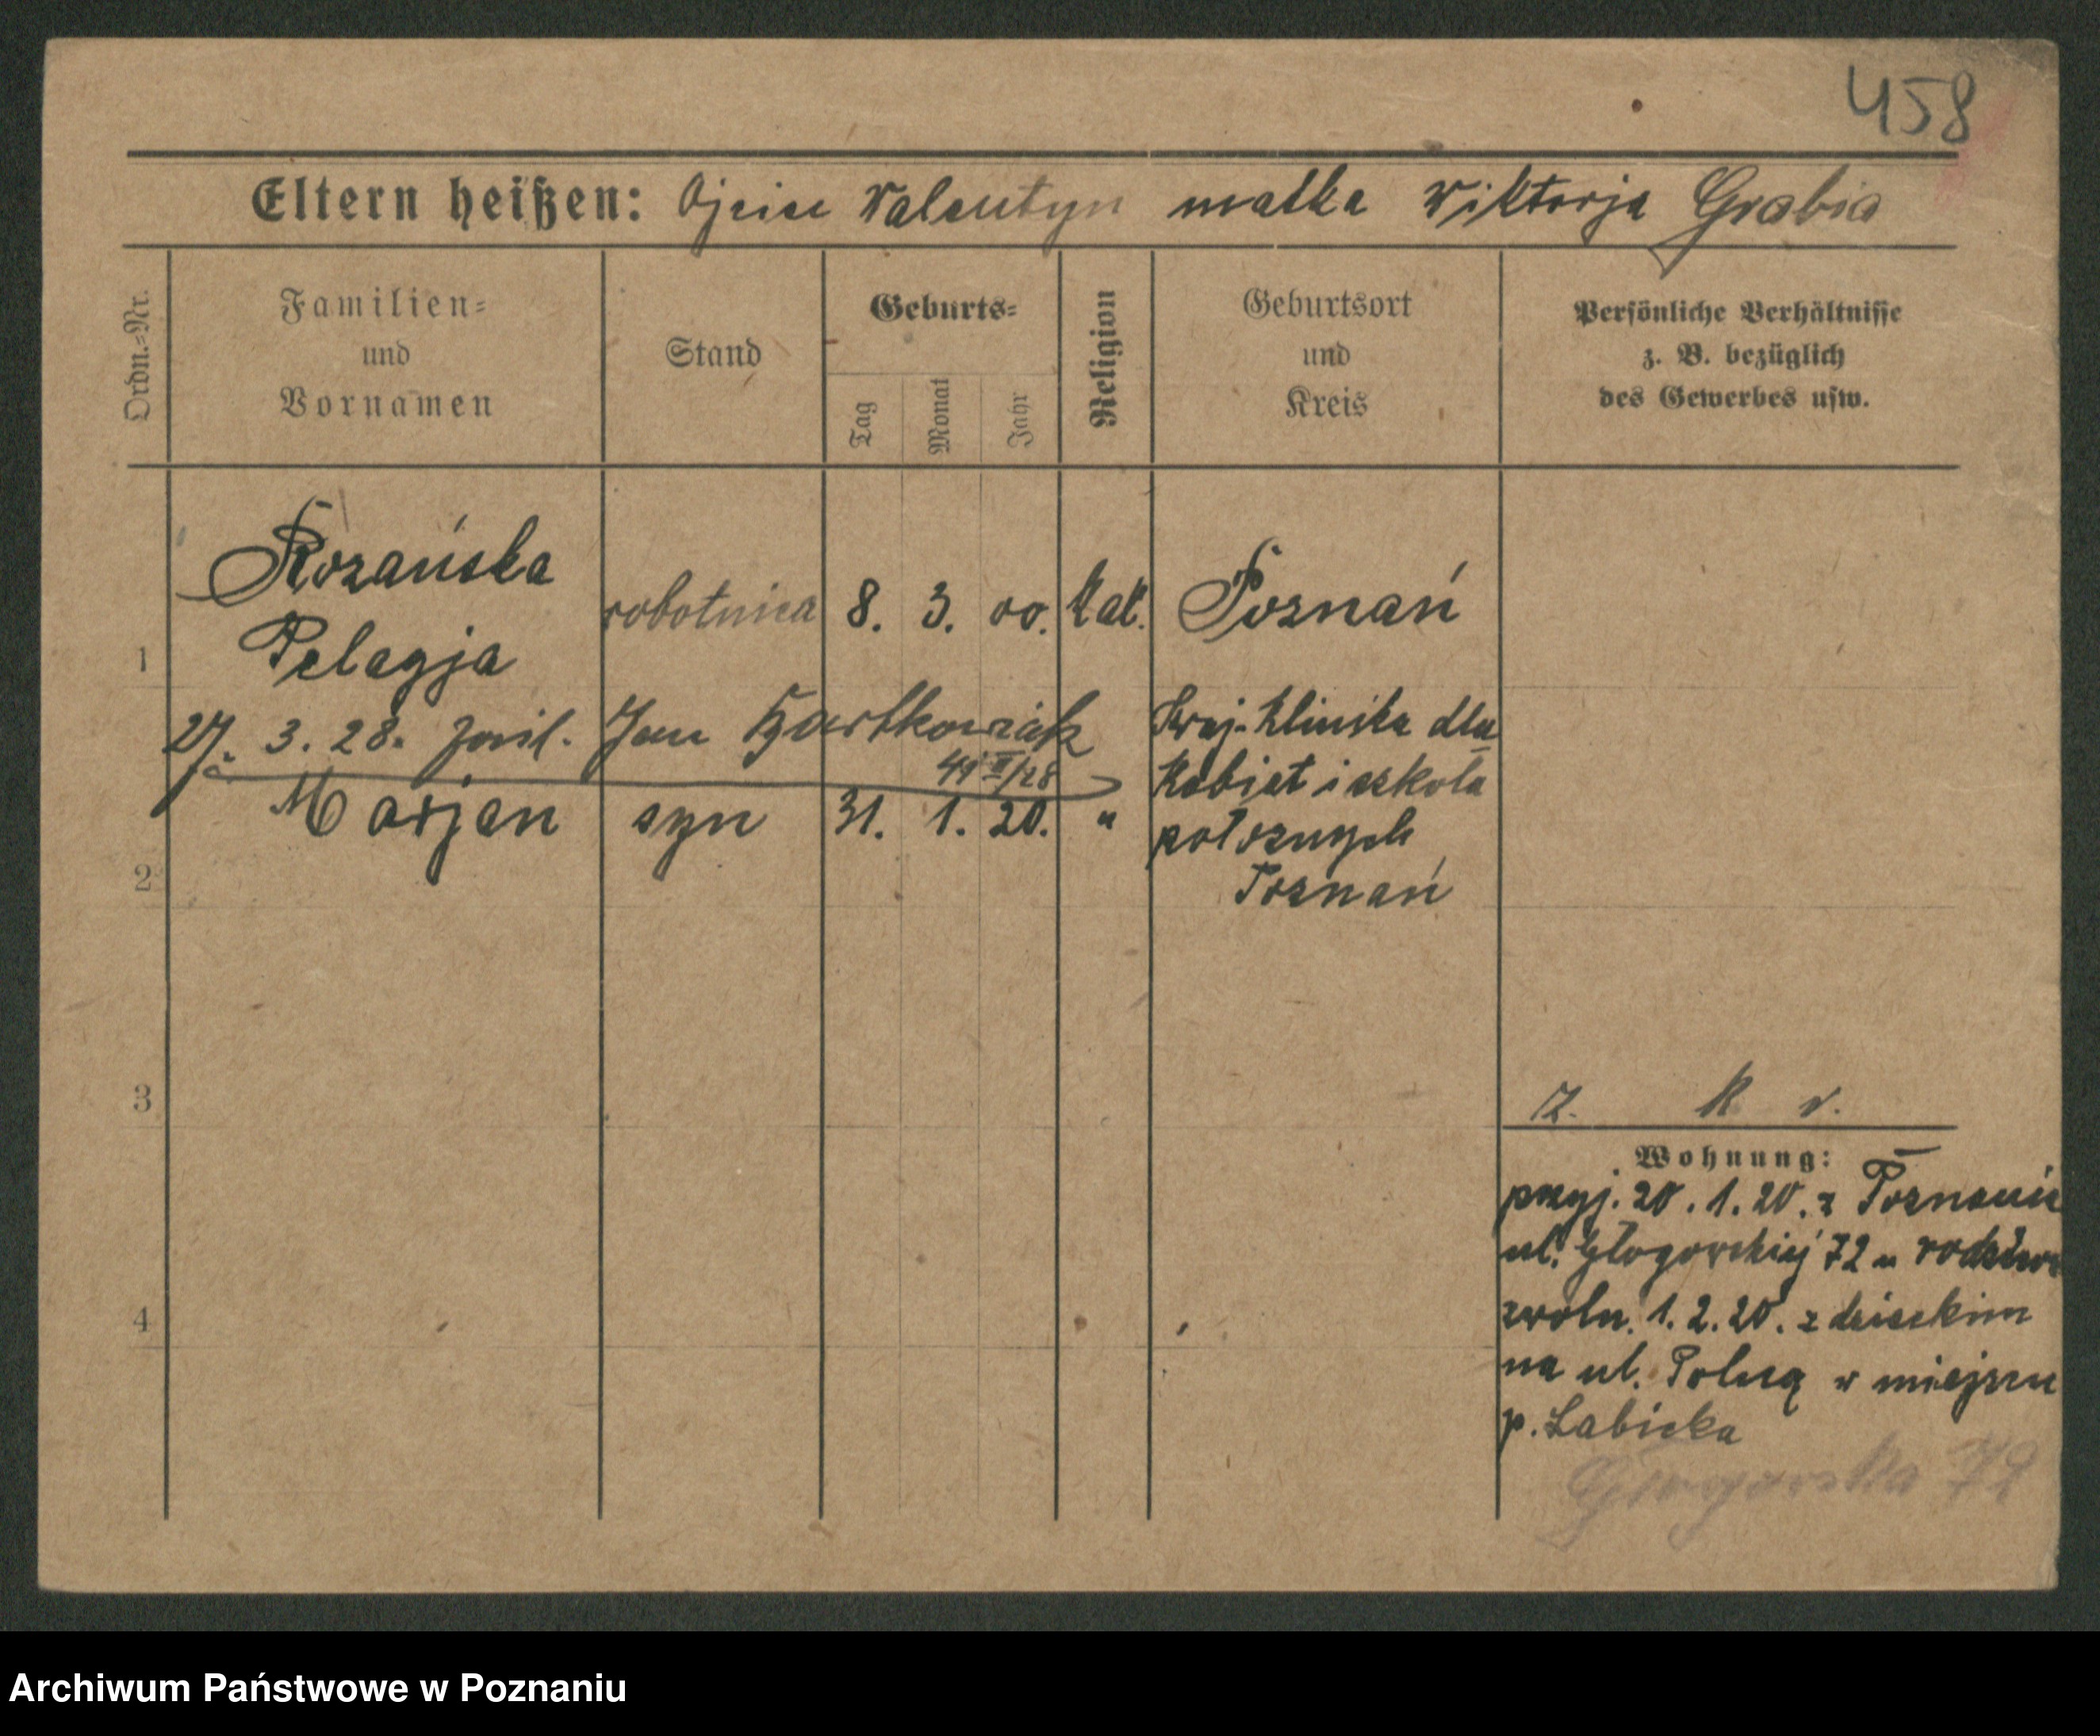 458
Eltern heißen: Ojciec Walentyn matka Wiktorja Grabia
Ordn.-Nr.
Familien-
und
Vornamen
Stand
Geburts-
Tag
Monat
Jahr
Religion
Geburtsort
und
Kreis
Persönliche Verhältnisse
z. B. bezüglich
des Gewerbes usw.
1
Rozańska
Pelagja
robotnica
8. 3. 00.
Kat.
Poznań
27. 3. 28. Jan Bartkowiak
Kraj. Klinika dla
Kobiet i szkoła
położnych
Poznań
2
Marjan
syn
31. 1. 20.
"
3
4
z. K v.
Wohnung:
przyj. 20. 1. 20. z Poznania
ul. Głogowskiej 72 u
zwoln. 1. 2. 20. z dzieckim
na ul. Polną w miejscu
p. Łabicka
Głogowska 72
Archiwum Państwowe w Poznaniu